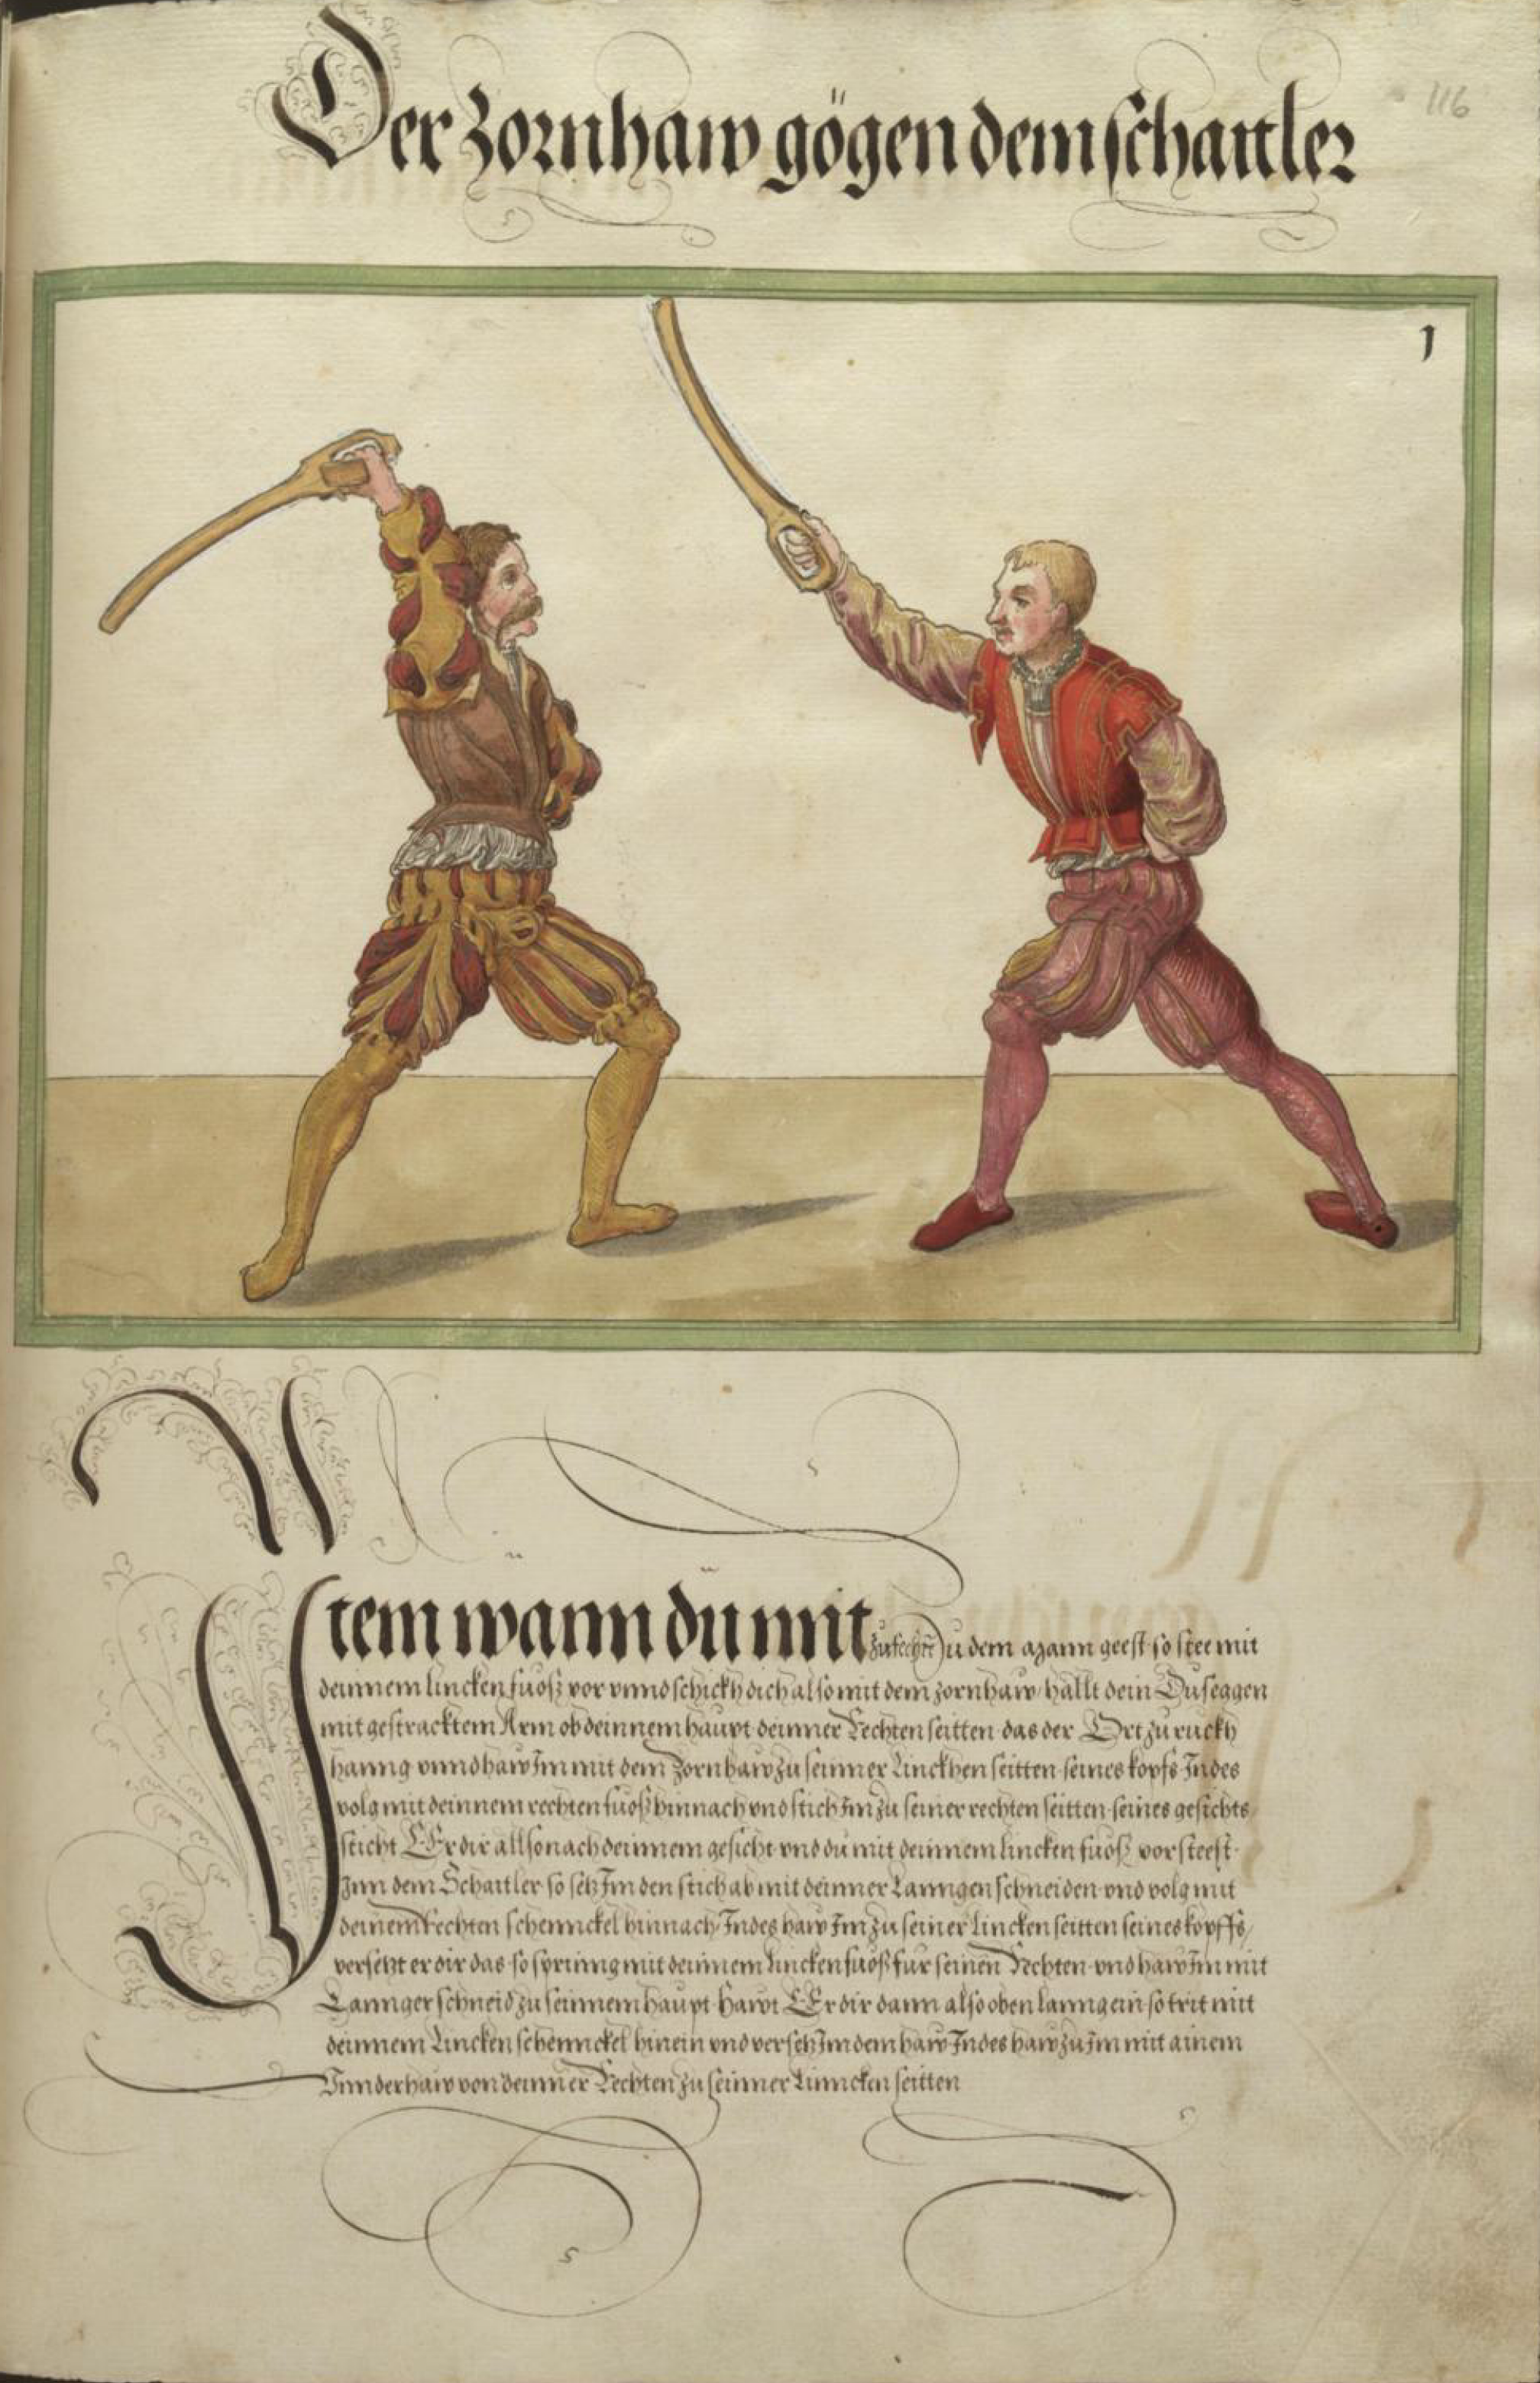 Der Zornhaw gögen dem schaitler
116
1
Item wänn dü mit zufechtē Du dem Mann geest so stee mit
deinnem lincken fuosz vor vnnd schickh dich also mit dem zornhaw hallt dein Duseggen
mit gestracktem Arm ob deinnem haupt deinner Rechten seitten das der Ort zu ruckh
hanng vnnd haw Im mit dem Zornhaw zu seinner Linckhen seitten seines kopfs Indes
volg mit deinnem rechten fuosz hinnach vnd stich Im zu seiner rechten seitten seines gesichts
sticht Er dir allso nach deinnem gesicht vnd du mit deinnem lincken fuosz vorsteest
Inn dem Schaitler so setz Im den stich ab mit deinner Lanngen schneiden vnd volg mit
deinem Rechten schennckel hinnach Indes haw Im zu seiner Lincken seitten seines kopffs
versetzt er dir das so spring mit deinnem Lincken fuosz für seinen Rechten vnd haw Im mit
Lannger schneid zu seinnem haupt Hawt Er dir dann also oben lanng ein so trit mit
deinnem Lincken schennckel hinein vnd versetz Im dem haw Indes haw zu Im mit ainem
Vnnderhaw von deinner Rechten zu seinner Linncken seitten